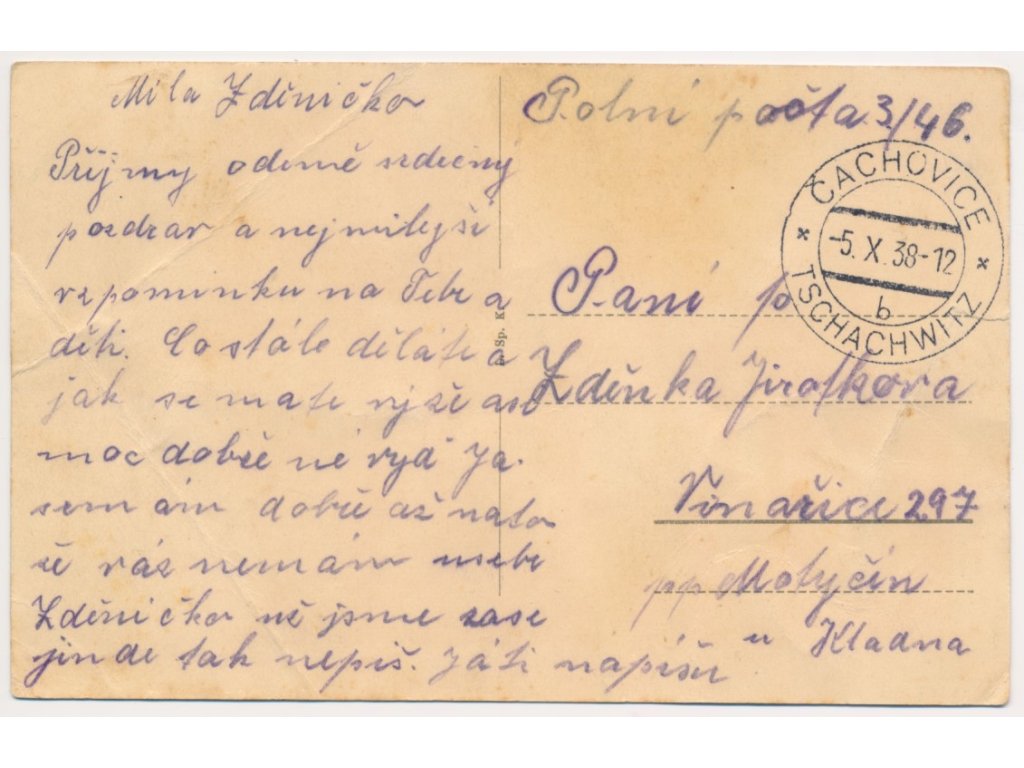 Mila Zděničko
Přijmy odemě srdečný
pozdrav a nejmilejší
vzpomínku na Tebe a
děti. Co stále děláte a
jak se mate
moc dobře né Já
se mám dobře až nato
že vás nemám usebe
Zděničko už jsme zase
jinde tak nepiš. Já ti napíšu
Sp. K
Polní pošta 3/46.
ČACHOVICE
-5. X. 38-12
b
TSCHACHWITZ
Paní p
Zděnka Jirotkova
Vinařice 297
pp Motyčín
u Kladna